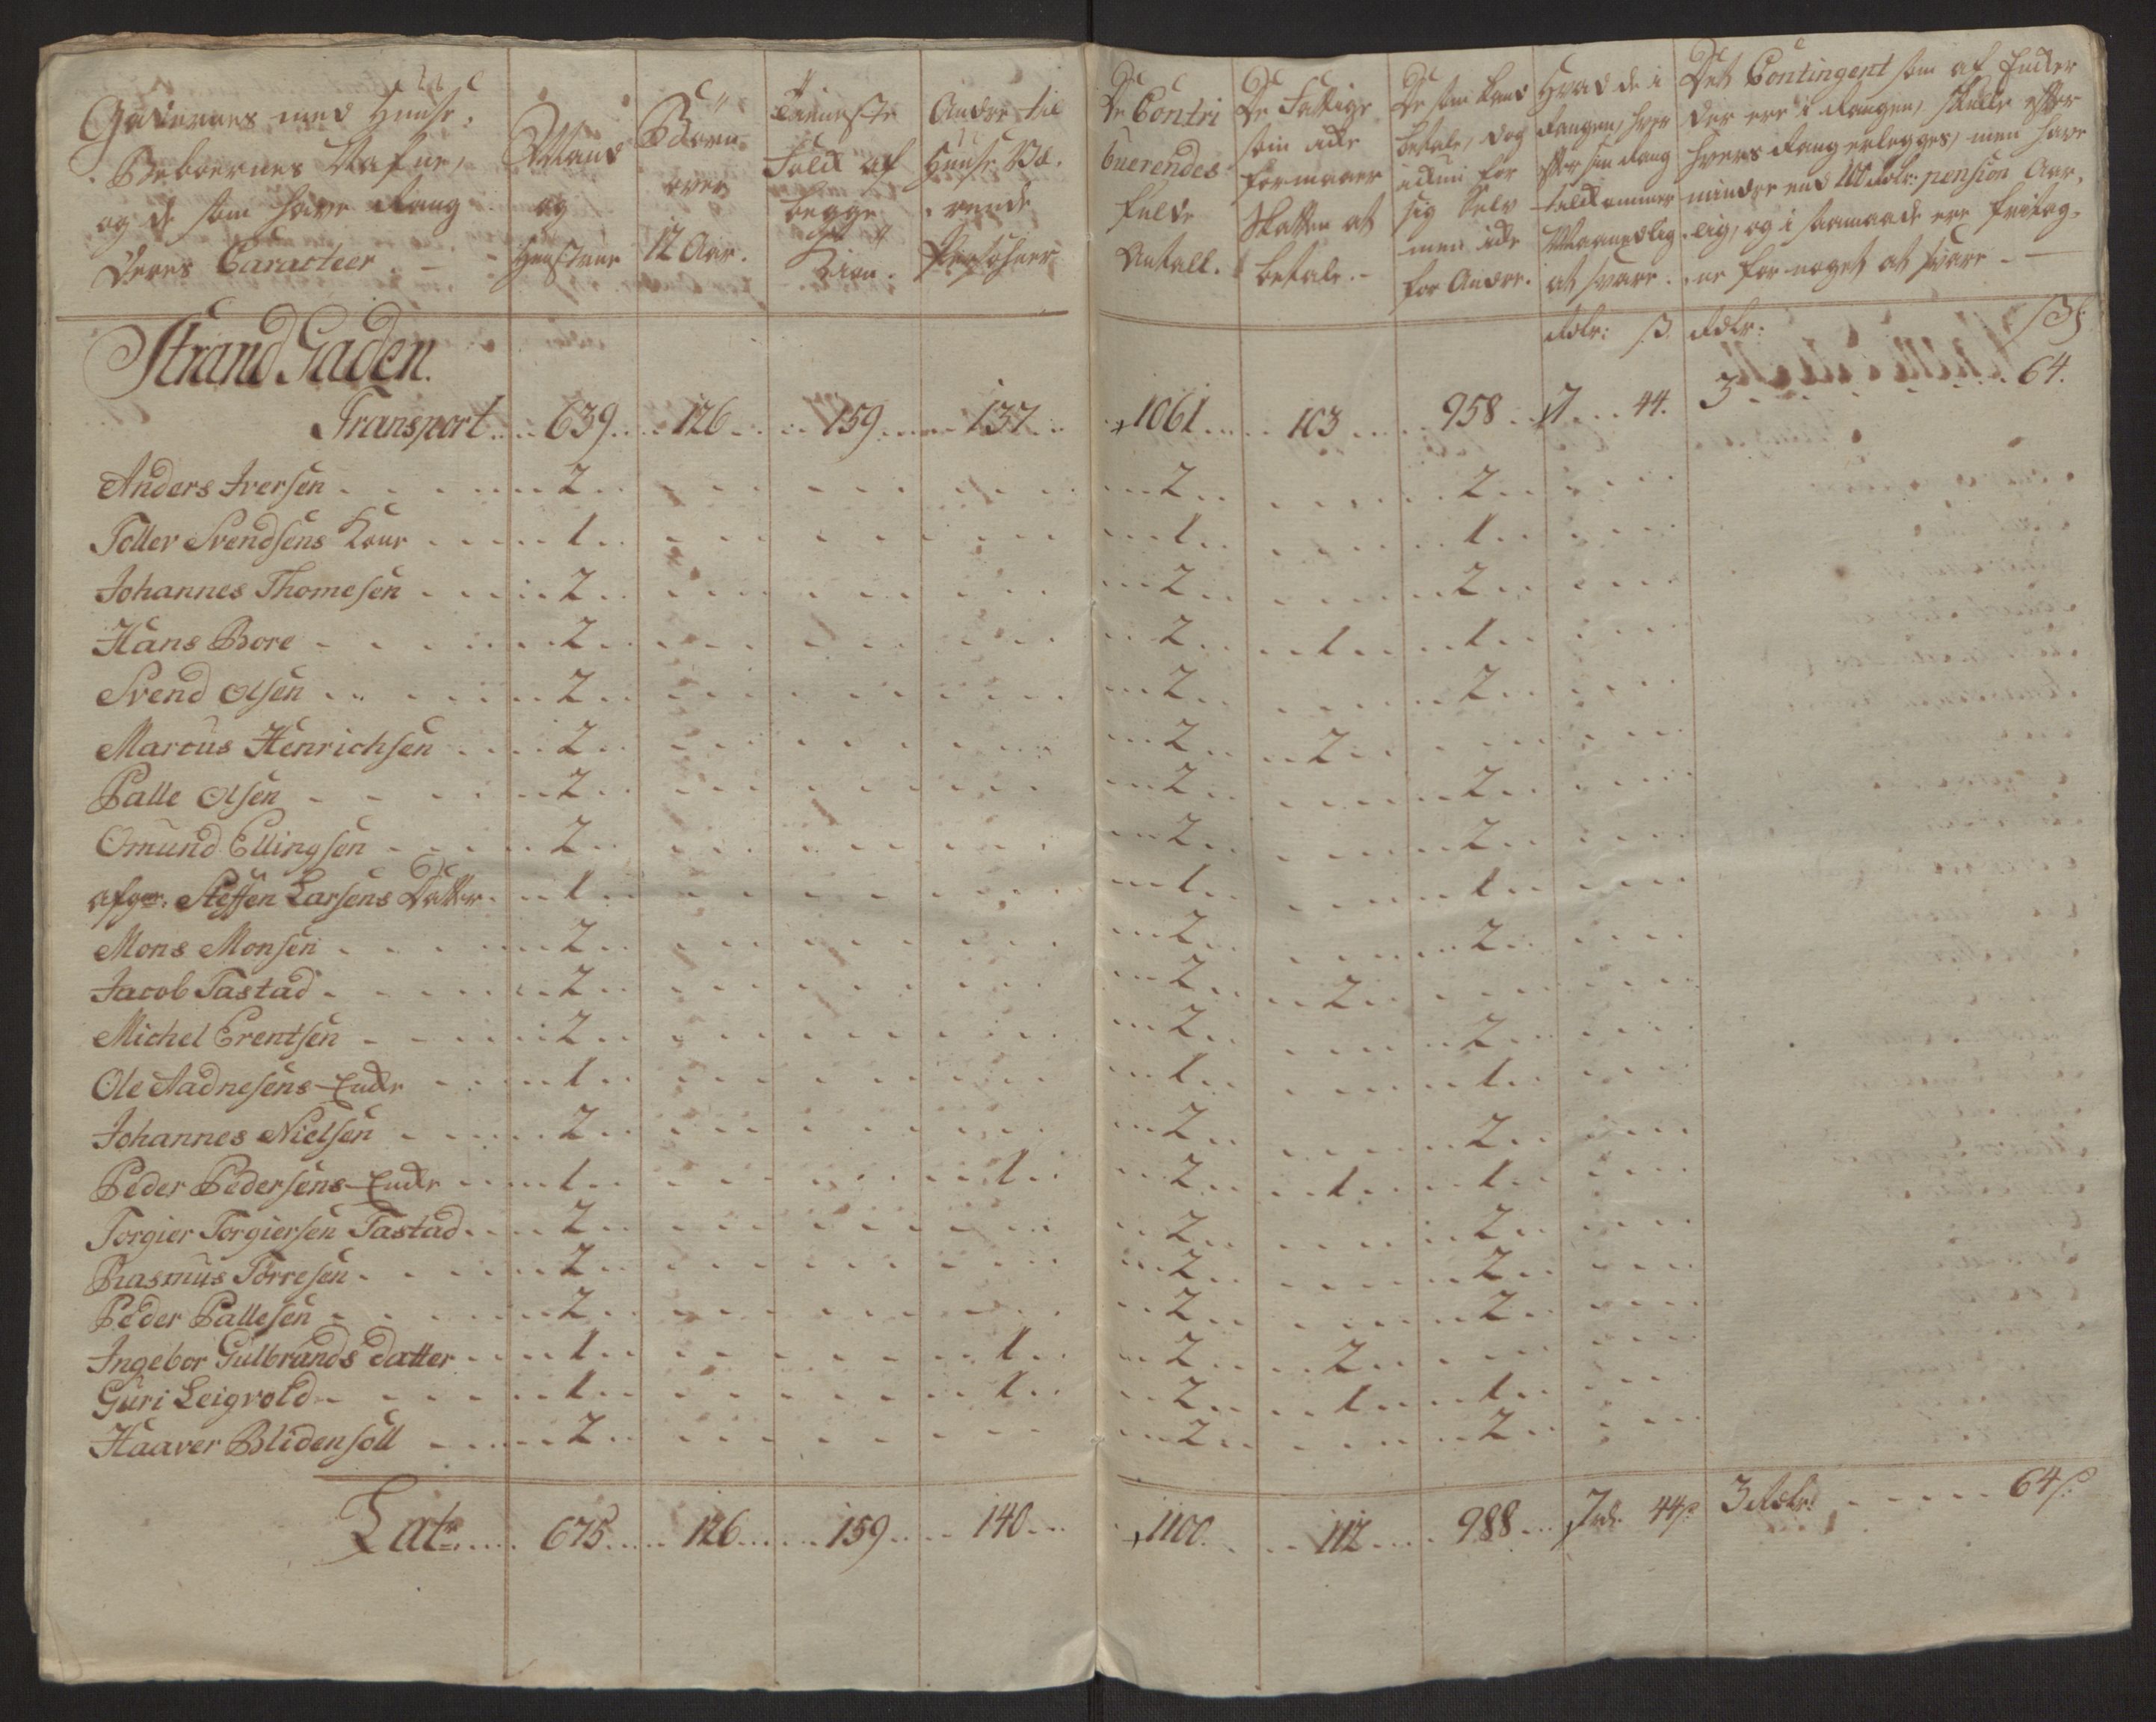 Gadernes med Huuse,
Beboernes Nafne,
og de som have Rang
Deres Caracteer. -
Mand
og
Hustrue
Børn
over
12 Aar.
Tieneste
Folk af
begge
Kiøn.
Andre til
Huuse Væ-
rende
Persohner
De Contri
buerendes
fulde
Antall.
De Fattige
som icke
formaaer
Skatten at
betale. -
De som kand
betale, dog
alleene for
sig selv
men icke
for Andre.
Hvad de i
Rangen, hver
efter sin Rang
tilkommer
Maanedlig
at svare.
Det Contingent som af Encker
der ere i Rangen, skulle efter
hvers Rang erlegges, men have
mindre end 100 Rdlr: pension Aar-
lig, og i saamaade ere fritag-
ne for noget at svare. -
Rdlr: ß Rdlr: ß
Strand Gaden.
Transport 639 126 159 137 1061 103 958 7 44. 3 64.
Anders Iversen 2 2 2
Toller Svendsens Kone 1 1 1
Johannes Thomesen 2 2 2
Hans Bore 2 2 1 1
Svend Olsen 2 2 2
Marcus Henrichsen 2 2 2
Palle Olsen 2 2 2
Omund Ellingsen 2 2 2
afgr: Steffen Larsens Datter 1 1 1
Mons Monsen 2 2 2
Jacob Tastad 2 2 2
Michel Erentsen 2 2 2
Ole Aadnesens Encke 1 1 1
Johannes Nielsen 2 2 2
Peder Pedersens Encke 1 1 2 1 1
Torgier Torgiersen Tastad 2 2 2
Rasmus Tørresen 2 2 2
Peder Pallesen 2 2 2
Ingebor Gulbrands datter 1 1 2 2
Guri Leigvold 1 1 2 1 1
Haaver Blidensoll 2 2 2
Latr. 675 126 159 140 1100 112 988 7 rd. 44 ß 3 Rdlr: 64 ß